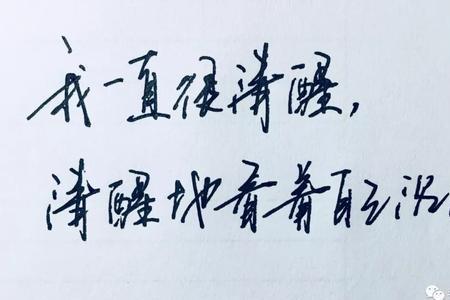 我一直很清醒，
清醒地看着自己沉